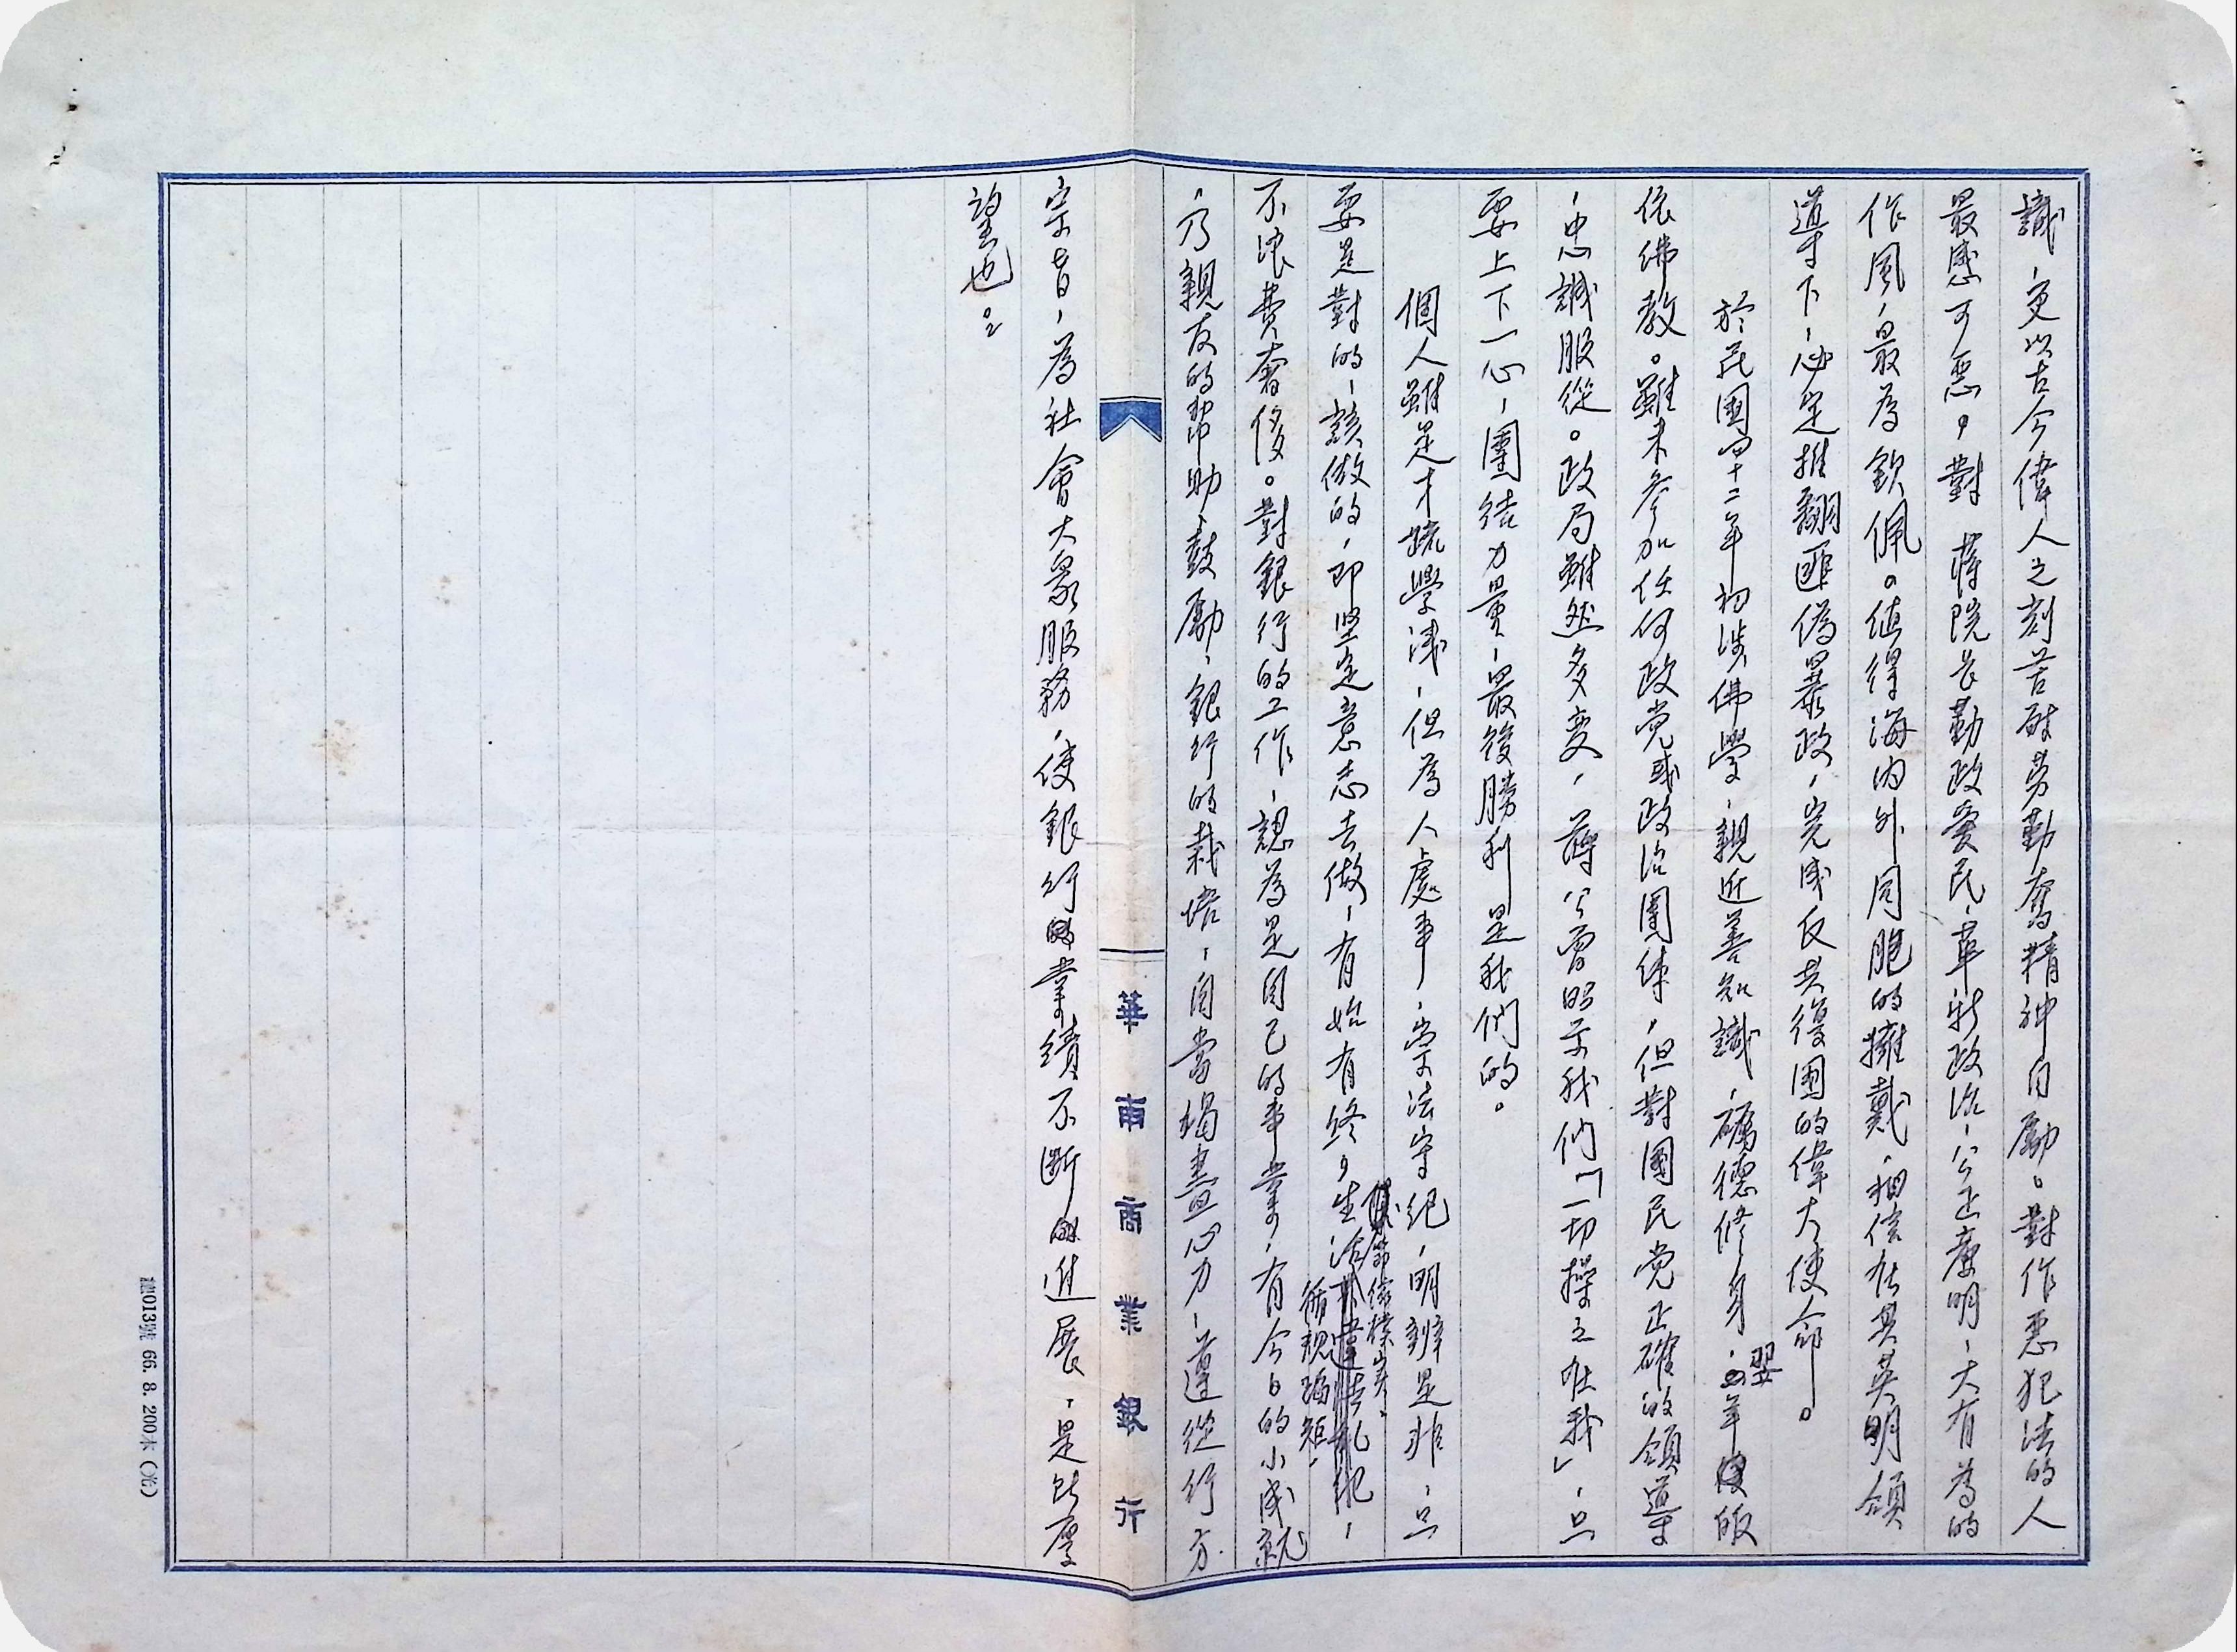 識，更以古今偉人之刻苦耐勞勤奮精神自勵。對作惡犯法的人
最感可惡，對 蔣院長勤政愛民，革新政治，公正廉明，大有為的
作風，最為欽佩。值得海內外同胞的擁戴，相信在其英明領
導下，必定推翻匪偽暴政，完成反共復國的偉大使命。
於民國四十二年初涉佛學，親近善知識，礪德修身，翌年皈
依佛教。雖未參加任何政党或政治團体，但對國民党正確的領導
，忠誠服從。政局雖然多變，蔣公曾昭示我們「一切操之在我」，只
要上下一心，團結力量，最後勝利是我們的。
個人雖是才疏學淺，但為人處事，崇法守紀，明辨是非，只
要是對的，該做的，即坚定意志去做，有始有終，生活節儉樸實，循規蹈矩，
不浪費奢侈。對銀行的工作，認為是自己的事業，有今日的小成就
，乃親友的幫助、鼓勵，銀行的栽培，自當竭盡心力，遵從行方
華南商業銀行
宗旨，為社會大衆服務，使銀行業績不斷進展，是所厚
望也。
013號 66. 8. 200本（光）